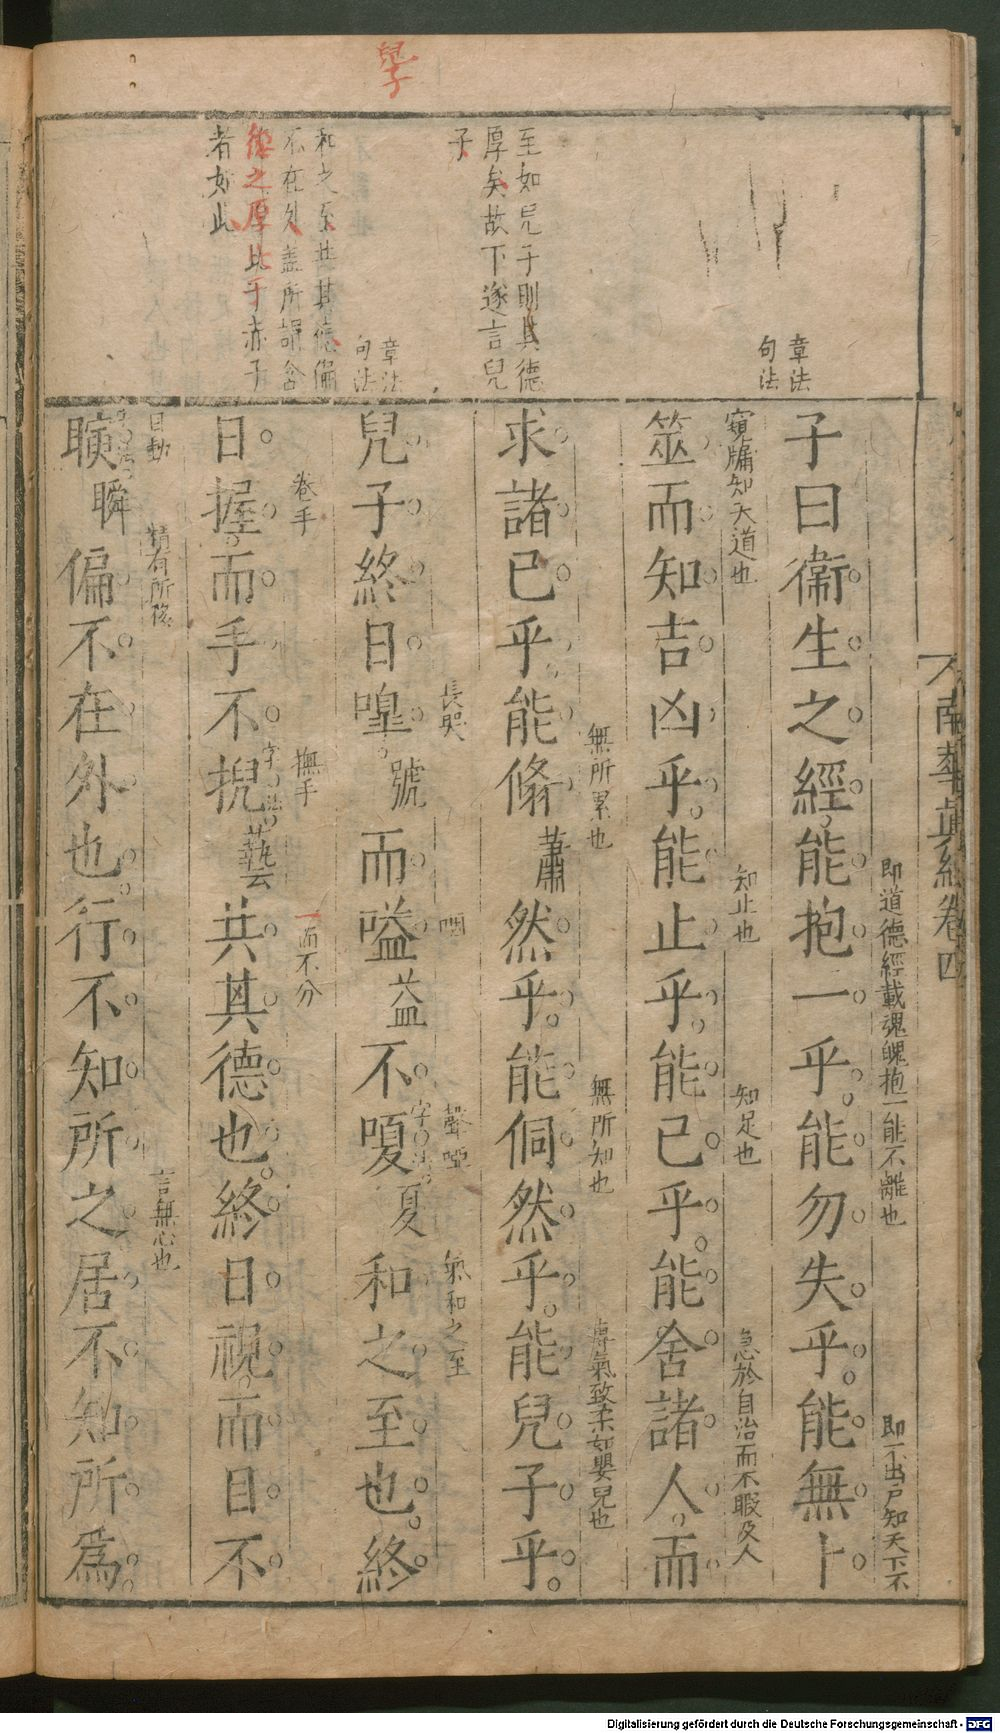 兒子
章法
句法
至如兒子則其德
厚矣故下遂言兒
子
章法
句法
和之至共其德偏
不在外盖所謂含
德之厚比于赤子
者如此
南華眞經卷四
即道德經載魂魄抱一能不離也
即不出戶知天下不
子曰衞生之經能抱一乎能勿失乎能無卜
窺牖知天道也
知止也
知足也
急於自治而不暇及人
筮而知吉凶乎能止乎能已乎能舍諸人而
無所累也
無所知也
專氣致柔如嬰兒也
求諸已乎能翛蕭然乎能侗然乎能兒子乎
長哭
咽
聲啞
字法
氣和之至
兒子終日嘷號而嗌益不嗄夏和之至也終
卷手
撫手
字法
一而不分
日握而手不掜藝共其德也終日視而目不
目動
字法
精有所移
言無心也
瞚瞬偏不在外也行不知所之居不知所爲
Digitalisierung gefördert durch die Deutsche Forschungsgemeinschaft - DFG